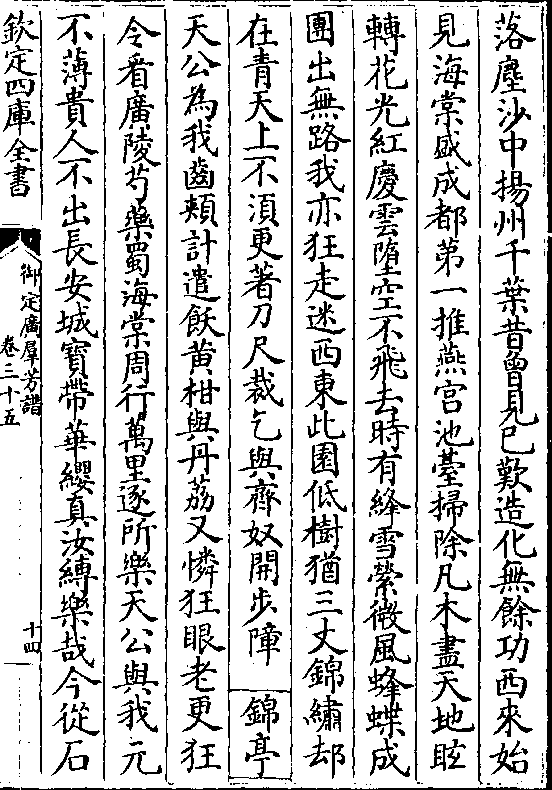 落塵沙中揚州千葉昔曾見已歎造化無餘功西來始
見海棠盛成都第一推燕宮池臺掃除凡木盡天地眩
轉花光紅慶雲墮空不飛去時有絳雪縈微風蜂蝶成
團出無路我亦狂走迷西東此園低樹猶三丈錦繡却
在青天上不須更著刀尺裁乞與齊奴開步障 錦亭
天公為我齒頰計遣飫黄柑與丹荔又憐狂眼老更狂
令看廣陵芍藥蜀海棠周行萬里逐所樂天公與我元
不薄貴人不出長安城寶帶華纓真汝縛樂哉今從石
欽定四庫全書
御定廣羣芳譜
卷三十五
十四